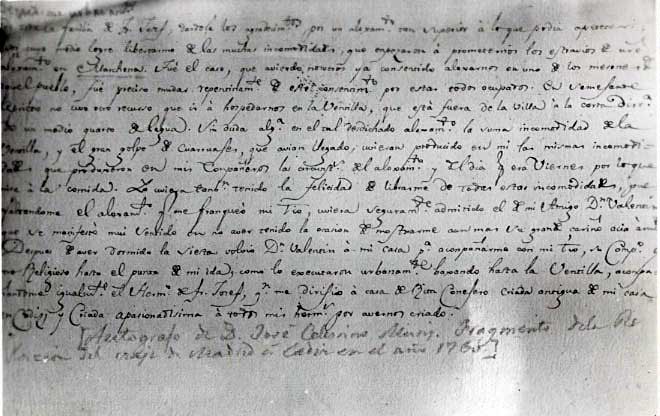 la familia de Fr. Josef, dandole los agradecim.tos por un aloxam.to tan superior à lo que podia apetecer;
por cuyo medio logré libertarme de las muchas incomodidades, que empezaron à prometernos los estravios de nro
aloxam.to en Manchona. Fué el caso, que aviendo nosotros ya consentido aloxarnos en uno de los mesones de
aquel pueblo, fué preciso mudar repentinam.te de este consentim.to por estar todos ocupados. En semejante
no tuvo otro recurso que ir à hospedarnos en la Ventilla, que està fuera de la villa à la corta dist.a
de un medio quarto de legua. Sin duda alg.a en el tal desdichado aloxam.to la suma incomodidad de la
Ventilla, y el gran golpe de que avian llegado, uvieran producido en mi las mismas incomodi-
dades que produxeron en mis Compañeros la circunst.a del aloxam.to y el dia q era Viernes por lo que
mira à la comida. Yo uviera tenido la felicidad de librarme de todas estas incomodidades, pues
el aloxam.to q me franqueò mi Tio, uviera seguram.te admitido el de mi Amigo D.n Valentin
que se manifestò mui sentido en no aver tenido la ocasion de mostrarme aun mas su grande cariño
Despues de aver dormido la siesta volvio D.n Valentin à mi casa p.a acompañarme con mi Tio, su Comp.o
Religioso hasta el punto de mi ida; como lo executaron urbanam.te baxando hasta la Ventilla, acompa-
ñandome igualm.te el Herm.o de Fr. Josef, q.n me dirigio à casa de Rita criada antigua de mi casa
en Cadiz, y Criada apasionadissima à todos mis herm.s por avernos criado.
[Autografo de D. José Celestino Mutis. Fragmento de la Re
lacion del viaje de Madrid à Cadiz en el año 1760]